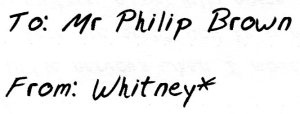 To: Mr Philip Brown
From: Whitney*